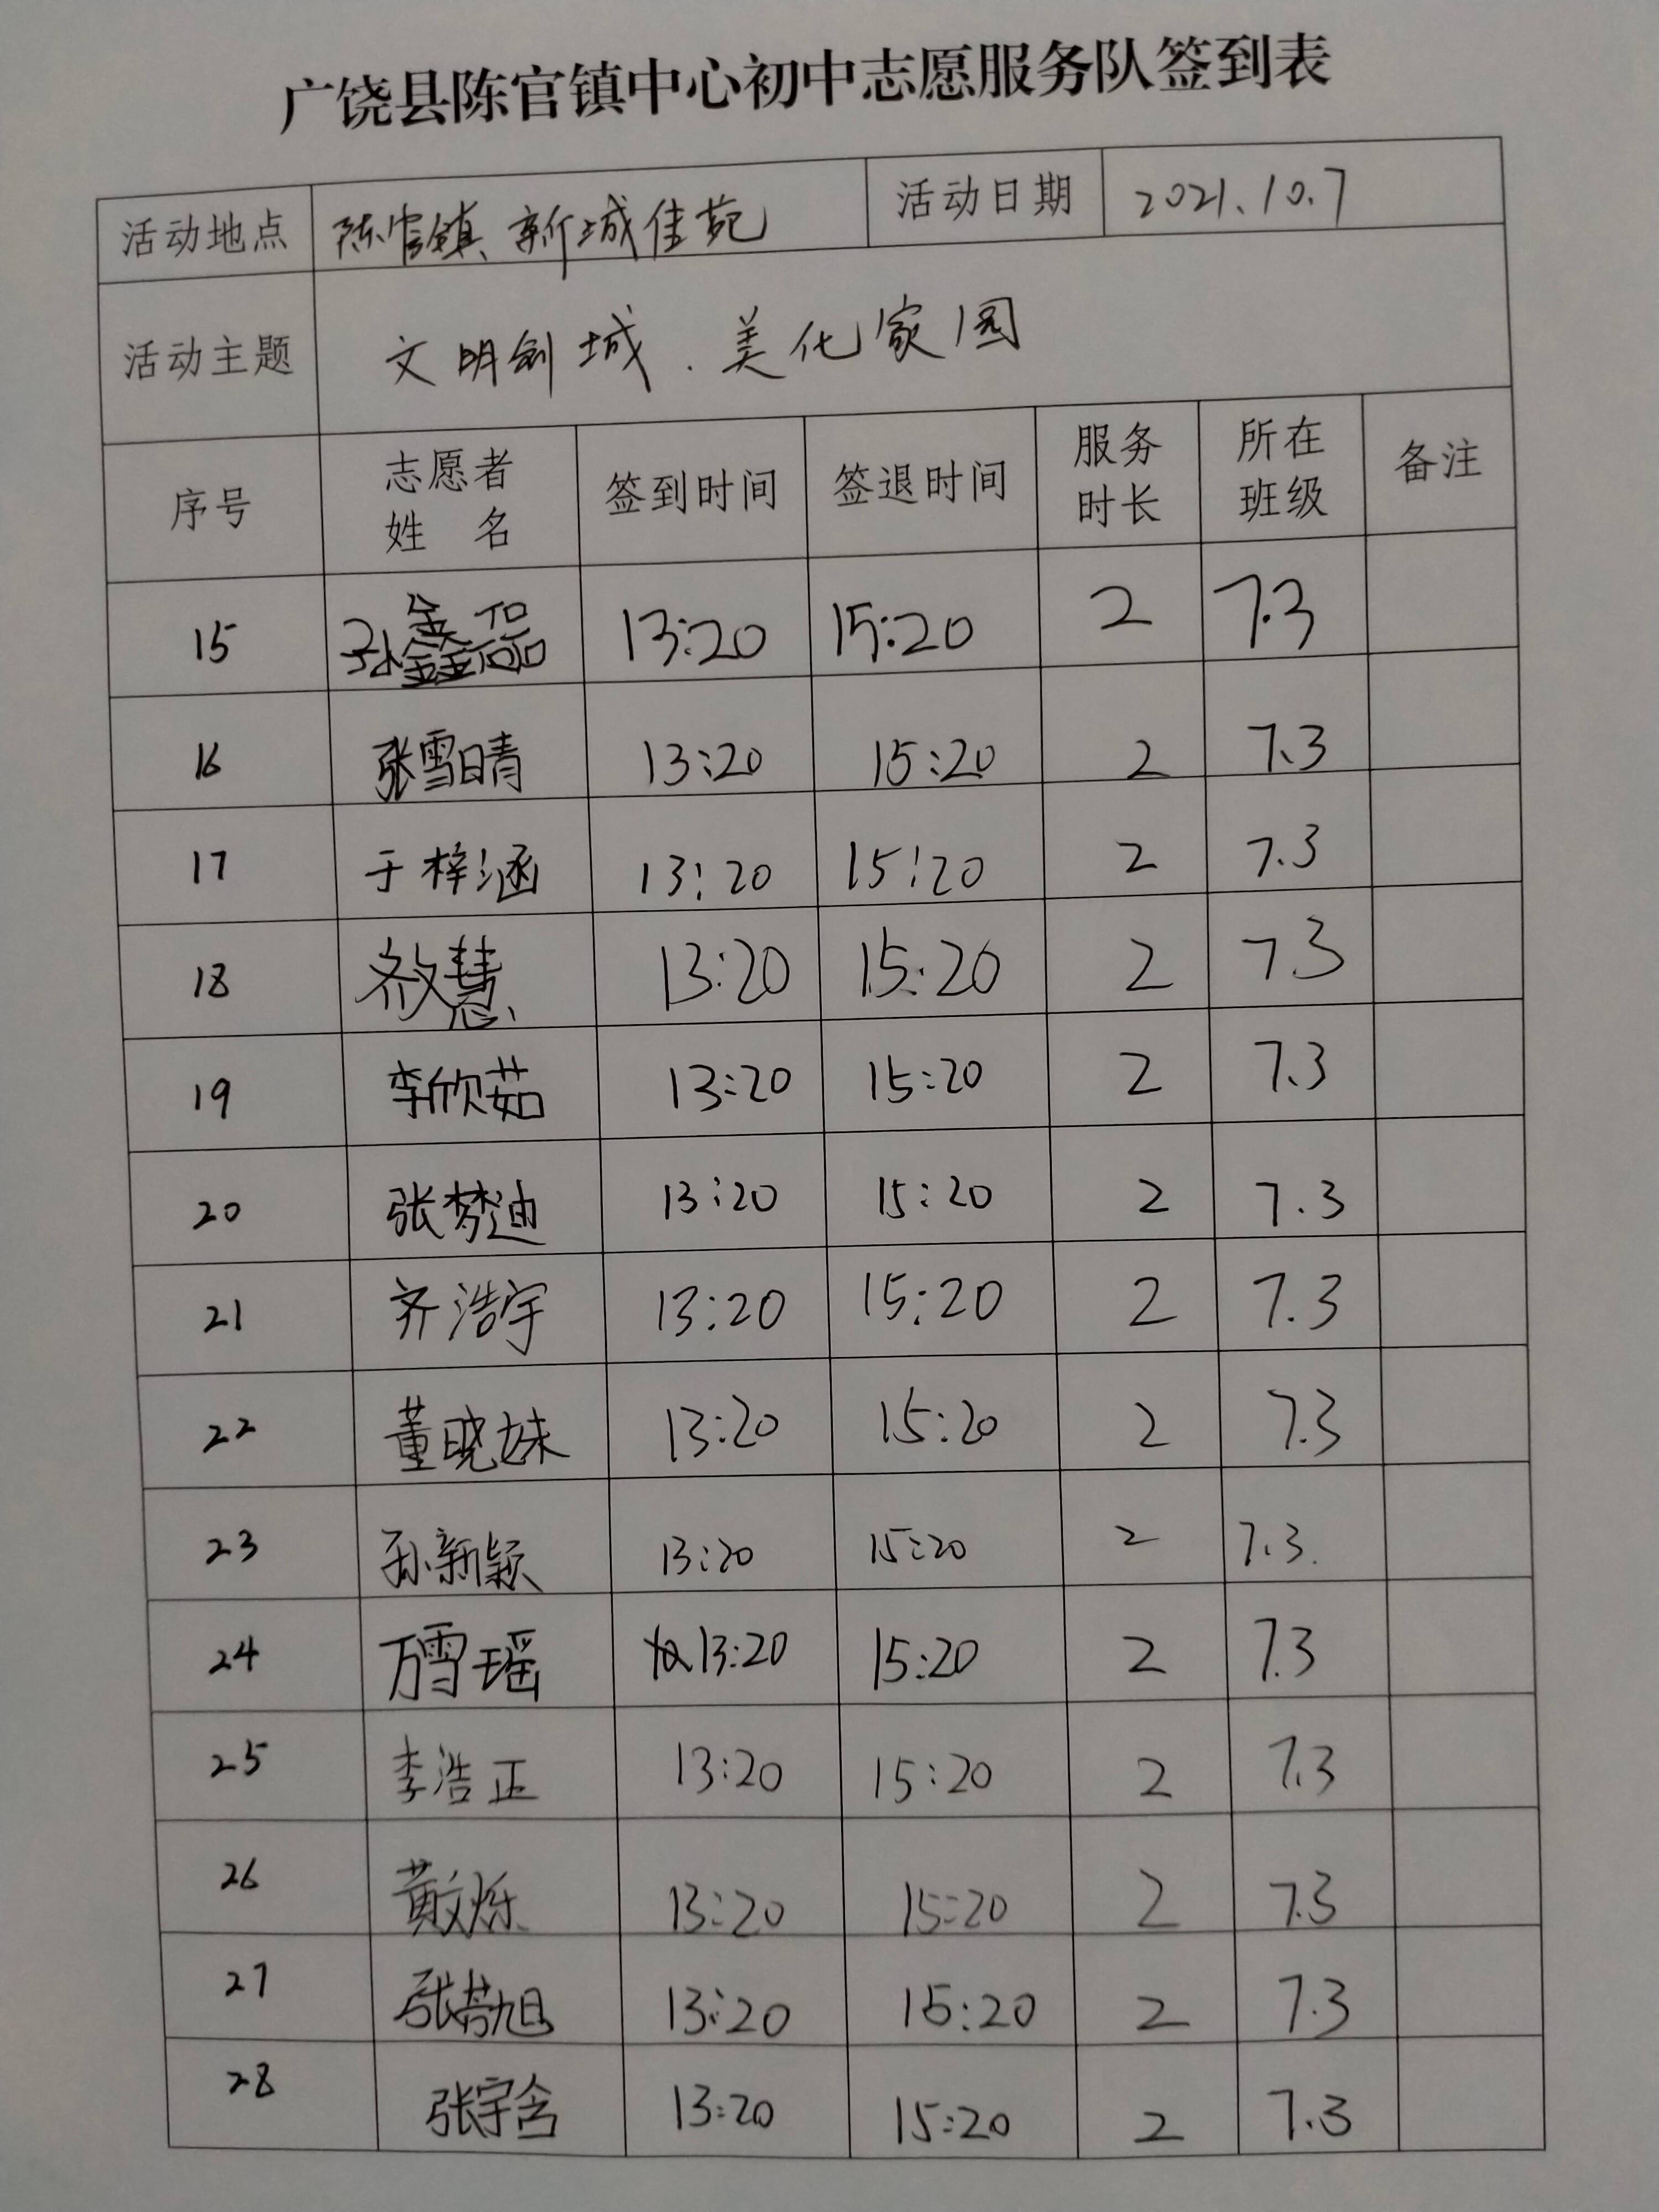 广饶县陈官镇中心初中志愿服务队签到表
活动地点 陈官镇新城佳苑 活动日期 2021.10.7
活动主题 文明创城.美化家园
序号 志愿者姓 名 签到时间 签退时间 服务时长 所在班级 备注
15 孙鑫磊 13:20 15:20 2 7.3
16 张雪晴 13:20 15:20 2 7.3
17 于梓涵 13:20 15:20 2 7.3
18 13:20 15:20 2 7.3
19 李欣茹 13:20 15:20 2 7.3
20 张梦迪 13:20 15:20 2 7.3
21 齐浩宇 13:20 15:20 2 7.3
22 董晓妹 13:20 15:20 2 7.3
23 孙新颖 13:20 15:20 2 7.3.
24 万雪瑶 13:20 15:20 2 7.3
25 李浩正 13:20 15:20 2 7.3
26 黄文烁 13:20 15:20 2 7.3
27 13:20 15:20 2 7.3
28 张宇含 13:20 15:20 2 7.3